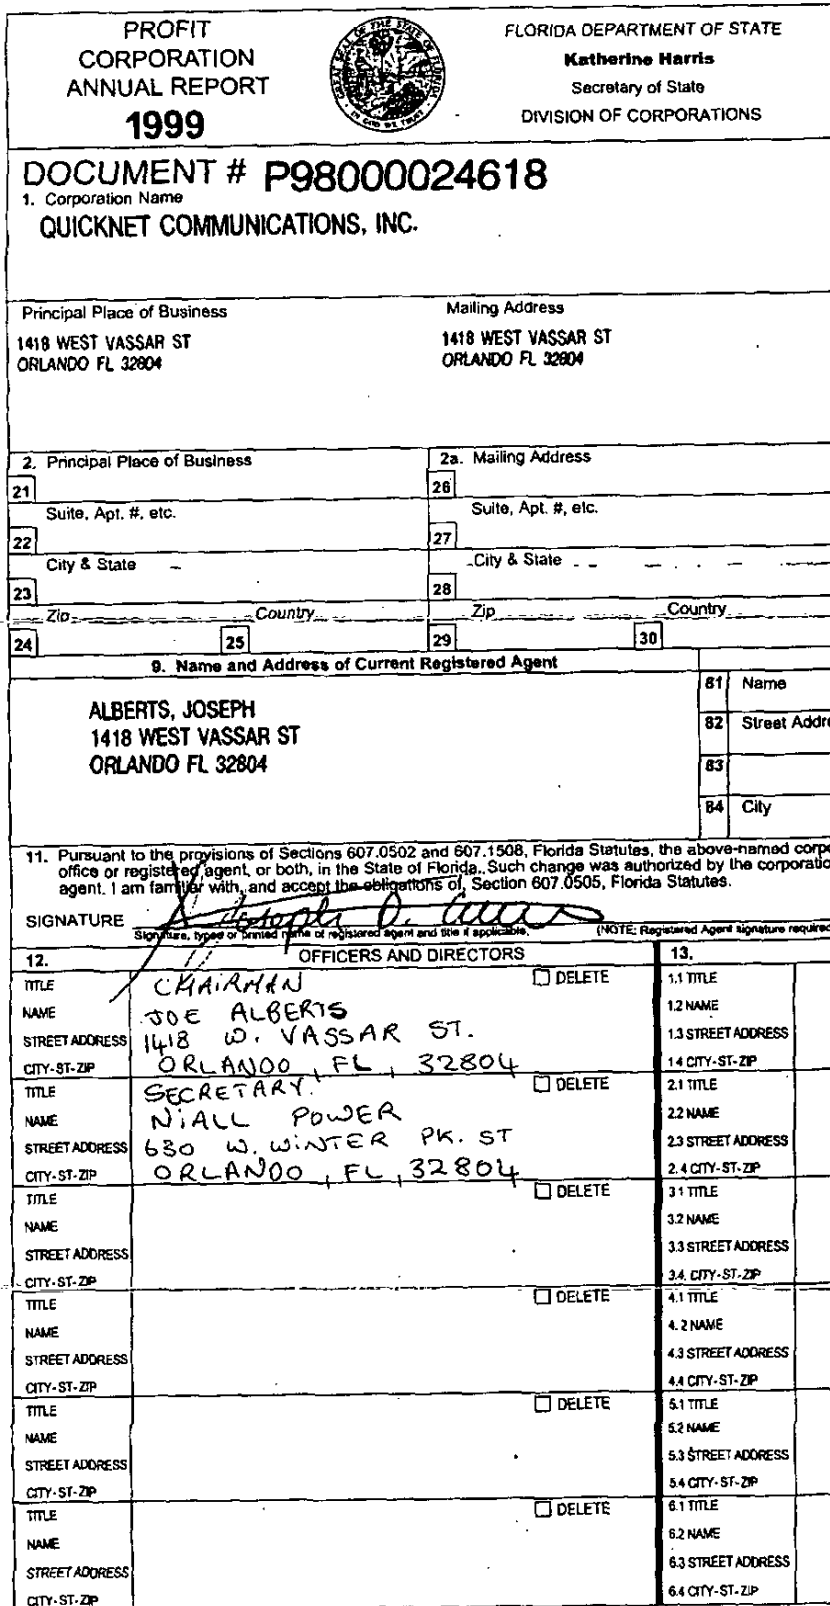 PROFIT
CORPORATION
ANNUAL REPORT
1999
GREAT SEAL OF THE STATE OF FLORIDA
IN GOD WE TRUST
FLORIDA DEPARTMENT OF STATE
Katherine Harris
Secretary of State
DIVISION OF CORPORATIONS
DOCUMENT # P98000024618
1. Corporation Name
QUICKNET COMMUNICATIONS, INC.
Principal Place of Business
1418 WEST VASSAR ST
ORLANDO FL 32804
Mailing Address
1418 WEST VASSAR ST
ORLANDO FL 32804
2. Principal Place of Business
2a. Mailing Address
21
26
Suite, Apt. #, etc.
Suite, Apt. #, etc.
22
27
City & State
City & State
23
28
Zip
Country
Zip
Country
24
25
29
30
9. Name and Address of Current Registered Agent
ALBERTS, JOSEPH
1418 WEST VASSAR ST
ORLANDO FL 32804
81 Name
82 Street Addre
83
84 City
11. Pursuant to the provisions of Sections 607.0502 and 607.1508, Florida Statutes, the above-named corpo
office or registered agent, or both, in the State of Florida. Such change was authorized by the corporatio
agent. I am familiar with, and accept the obligations of, Section 607.0505, Florida Statutes.
SIGNATURE
Signature, typed or printed name of registered agent and title if applicable.
(NOTE: Registered Agent signature required
12. OFFICERS AND DIRECTORS
13.
TITLE CHAIRMAN DELETE
NAME JOE ALBERTS
STREET ADDRESS 1418 W. VASSAR ST.
CITY-ST-ZIP ORLANDO, FL, 32804
TITLE SECRETARY. DELETE
NAME NIALL POWER
STREET ADDRESS 630 W. WINTER PK. ST
CITY-ST-ZIP ORLANDO, FL, 32804
TITLE DELETE
NAME
STREET ADDRESS
CITY-ST-ZIP
TITLE DELETE
NAME
STREET ADDRESS
CITY-ST-ZIP
TITLE DELETE
NAME
STREET ADDRESS
CITY-ST-ZIP
TITLE DELETE
NAME
STREET ADDRESS
CITY-ST-ZIP
1.1 TITLE
1.2 NAME
1.3 STREET ADDRESS
1.4 CITY-ST-ZIP
2.1 TITLE
2.2 NAME
2.3 STREET ADDRESS
2.4 CITY-ST-ZIP
3.1 TITLE
3.2 NAME
3.3 STREET ADDRESS
3.4. CITY-ST-ZIP
4.1 TITLE
4.2 NAME
4.3 STREET ADDRESS
4.4 CITY-ST-ZIP
5.1 TITLE
5.2 NAME
5.3 STREET ADDRESS
5.4 CITY-ST-ZIP
6.1 TITLE
6.2 NAME
6.3 STREET ADDRESS
6.4 CITY-ST-ZIP